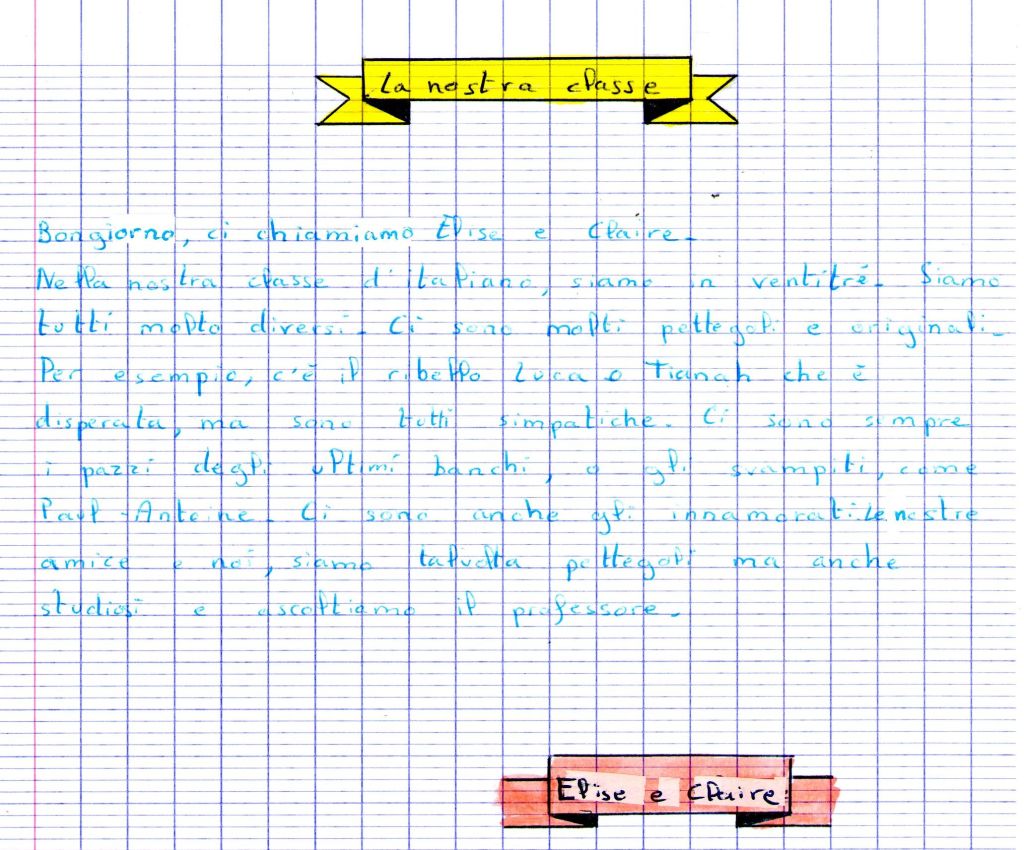 La nostra classe
Bongiorno, ci chiamiamo Elise e Claire.
Nella nostra classe d'italiano, siamo in ventitré. Siamo
tutti molto diversi. Ci sono molti pettegoli e originali.
Per esempio, c'è il ribello Luca o Tianah che è
disperata, ma sono tutti simpatiche. Ci sono sempre
i pazzi degli ultimi banchi, o gli svampiti, come
Paul-Antoine. Ci sono anche gli innamorati. Le nostre
amice e noi, siamo talvolta pettegoli ma anche
studiosi e ascoltiamo il professore.
Elise e Claire